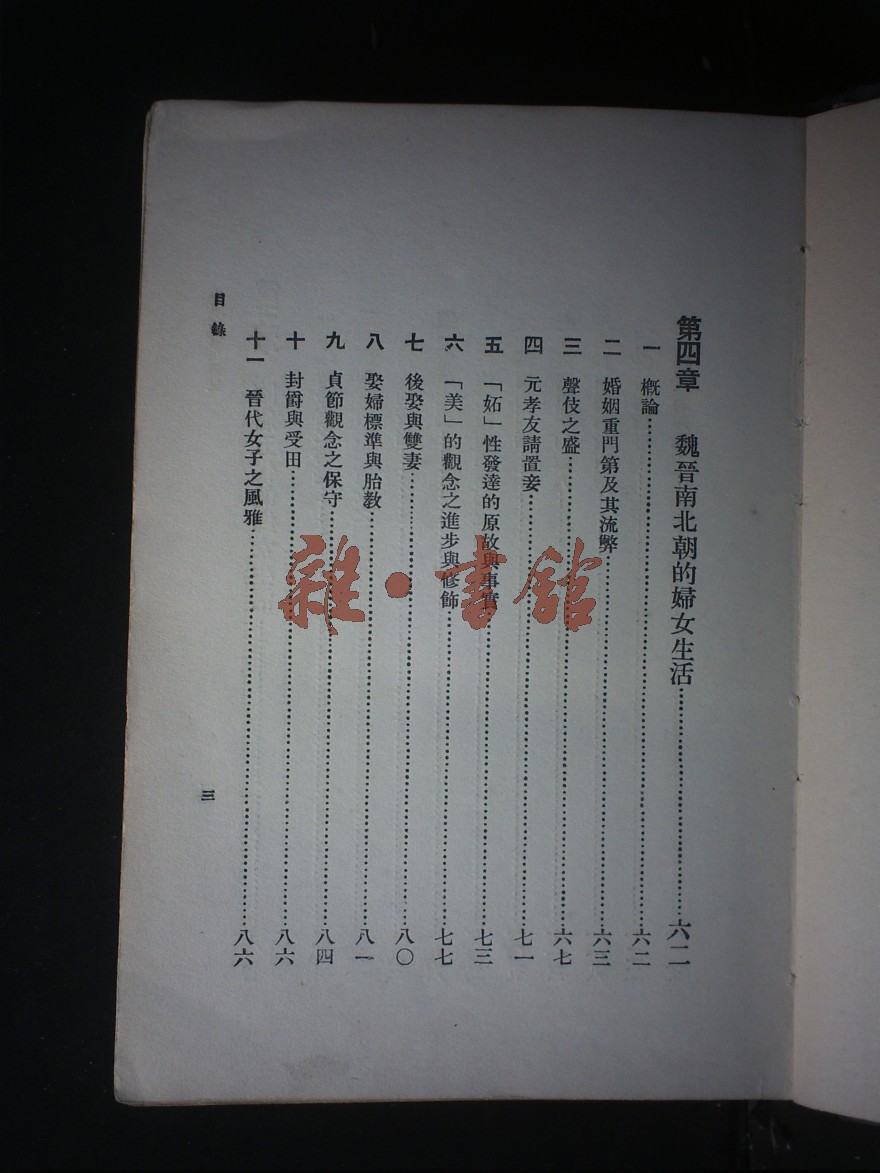 第四章 魏晉南北朝的婦女生活……六二
一 概論……六二
二 婚姻重門第及其流弊……六三
三 聲伎之盛……六七
四 元孝友請置妾……七一
五 「妬」性發達的原故與事實……七三
六 「美」的觀念之進步與修飾……七七
七 後娶與雙妻……八〇
八 娶婦標準與胎教……八一
九 貞節觀念之保守……八四
十 封爵與受田……八六
十一 晉代女子之風雅……八六
目錄
三
雜·書館